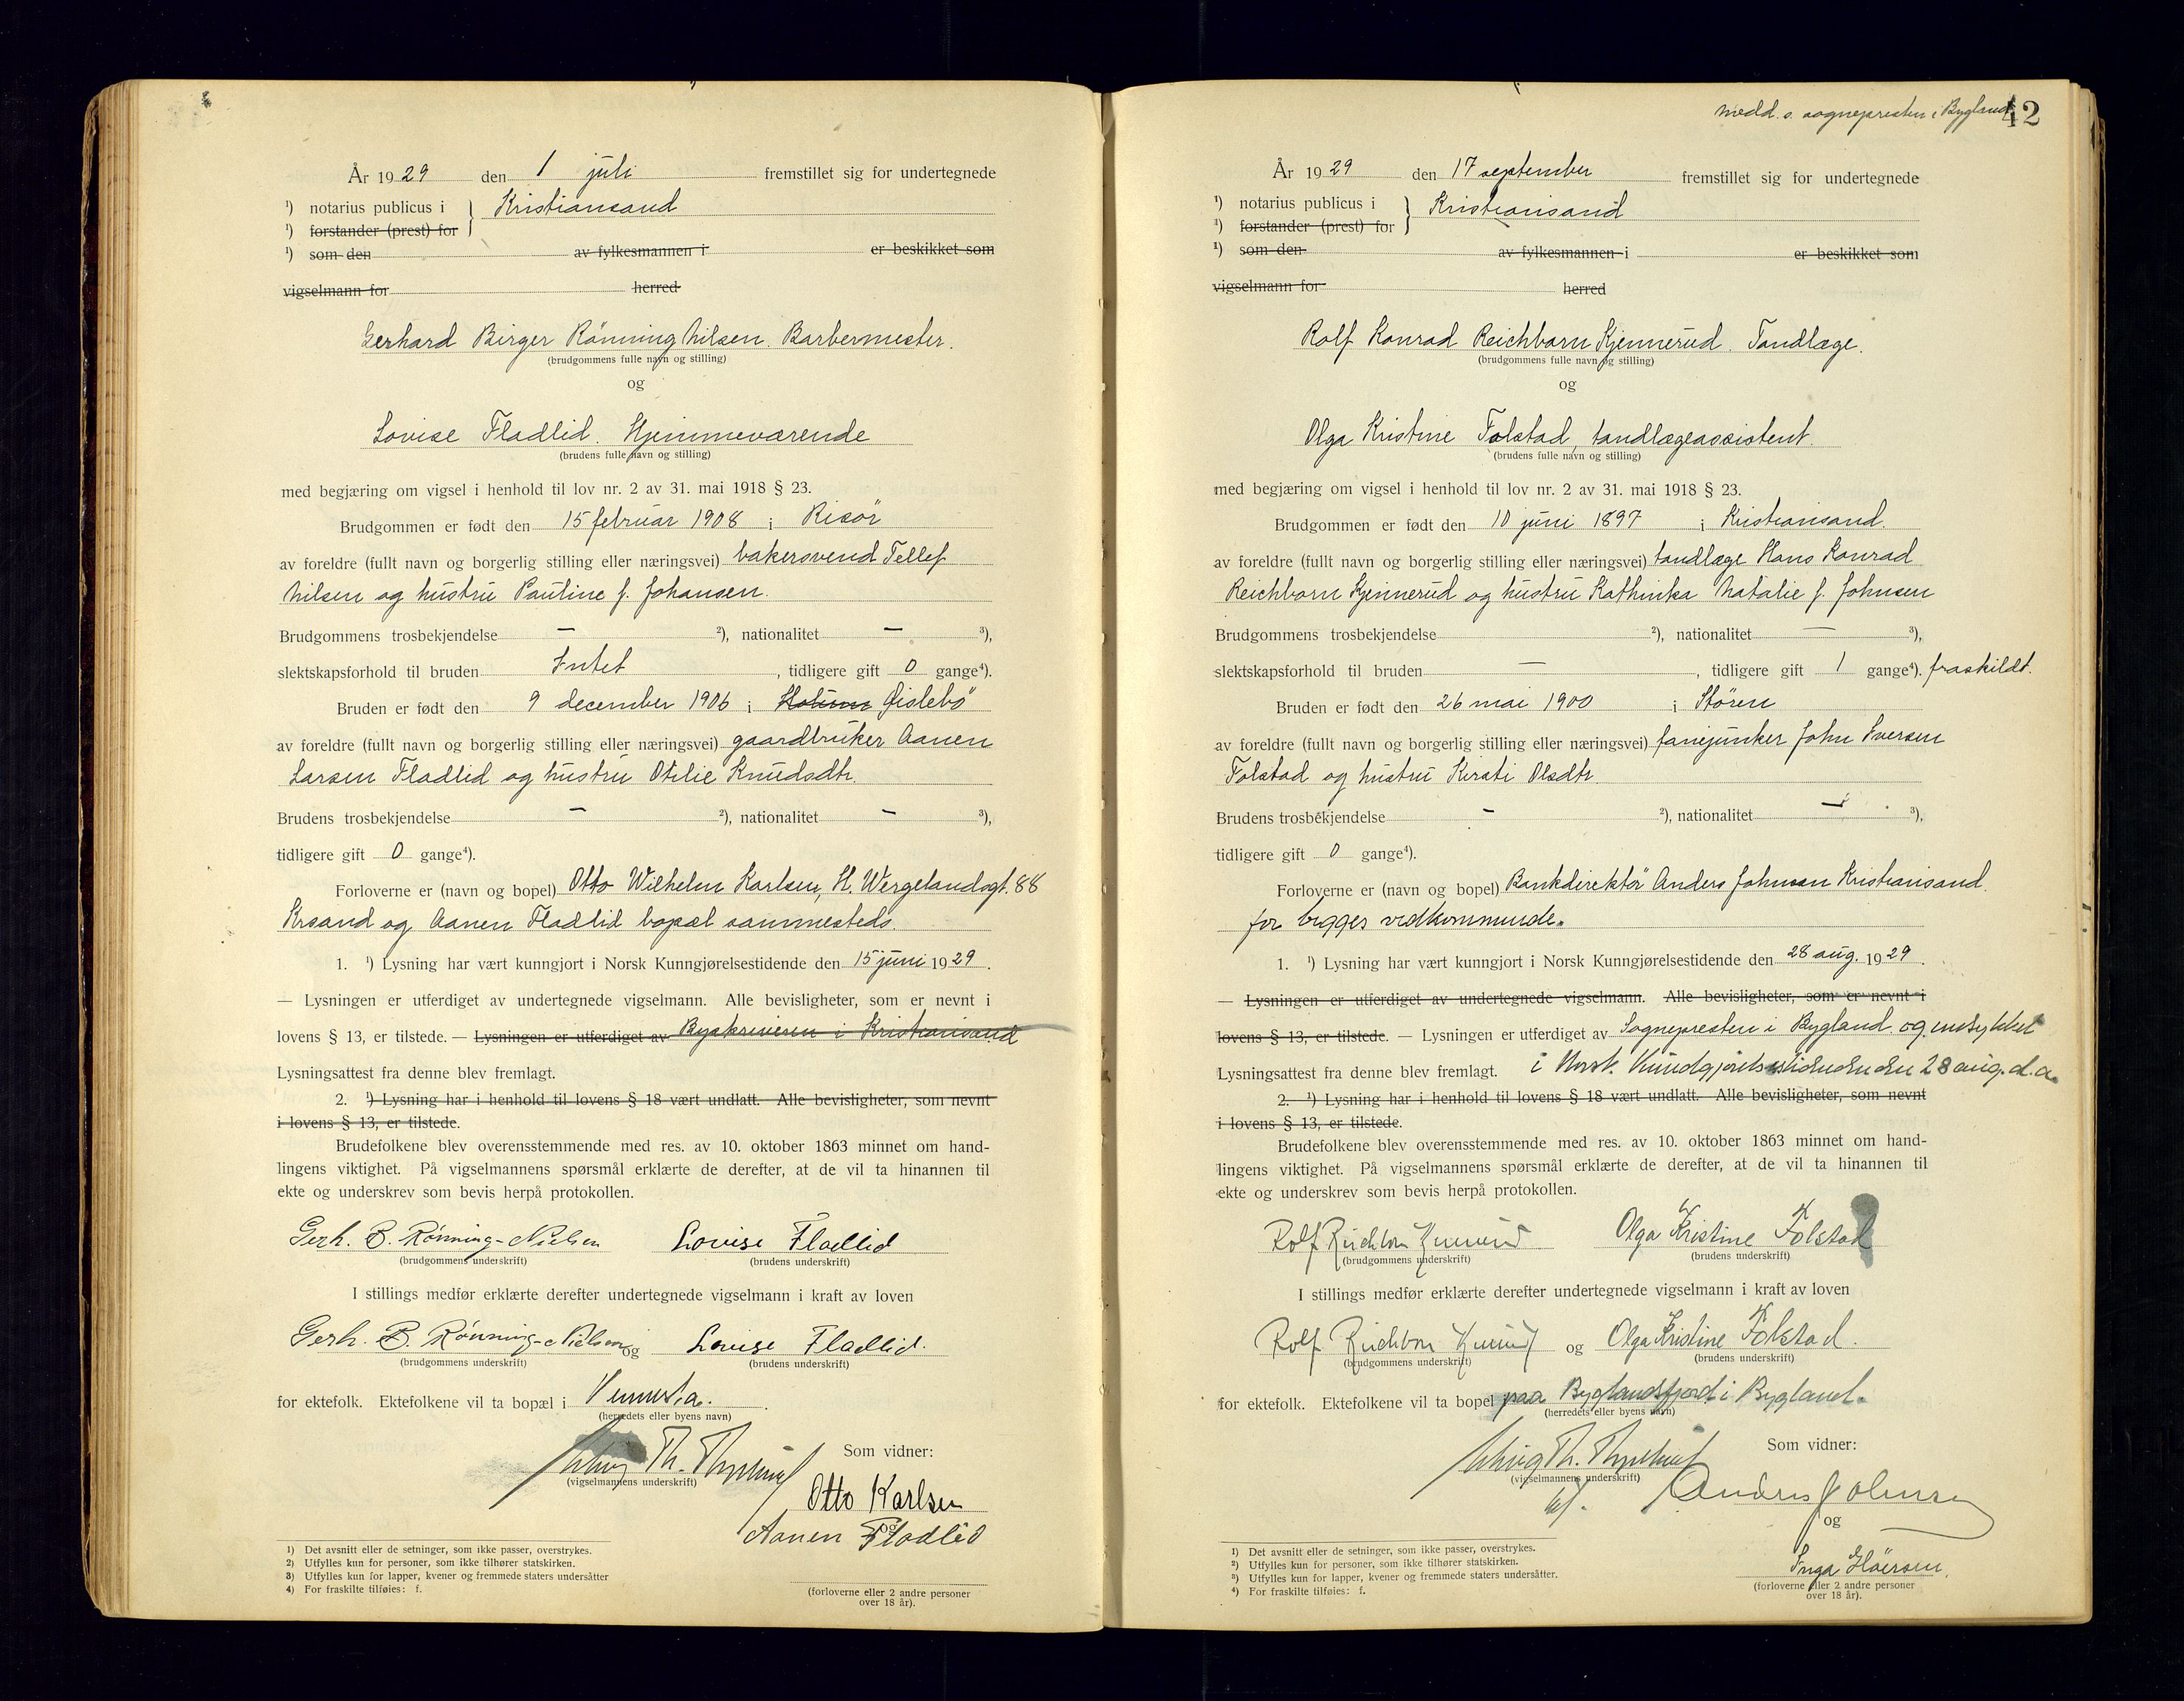 År 1929 den 1 juli fremstillet sig for undertegnede
¹) notarius publicus i } Kristiansand
¹) forstander (prest) for
¹) som den av fylkesmannen i er beskikket som
vigselmann for herred
Gerhard Birger Rönning Nilsen. Barbermester.
(brudgommens fulle navn og stilling)
og
Lovise Fladlid. Hjemmeværende
(brudens fulle navn og stilling)
med begjæring om vigsel i henhold til lov nr. 2 av 31. mai 1918 § 23.
Brudgommen er født den 15 februar 1908 i Risör
av foreldre (fullt navn og borgerlig stilling eller næringsvei) bakersvend Tellef
Nilsen og hustru Pauline f. Johansen.
Brudgommens trosbekjendelse — ²), nationalitet — ³),
slektskapsforhold til bruden Intet , tidligere gift 0 gange⁴).
Bruden er født den 9 december 1906 i Holum Øislebö
av foreldre (fullt navn og borgerlig stilling eller næringsvei) gaardbruker Aanen
Larsen Fladlid og hustru Otilie Knudsdtr.
Brudens trosbekjendelse — ²), nationalitet — ³),
tidligere gift 0 gange⁴).
Forloverne er (navn og bopel) Otto Wilhelm Karlsen, H. Wergelandsgt. 88
Krsand og Aanen Fladlid bopæl sammesteds.
1. ¹) Lysning har vært kunngjort i Norsk Kunngjørelsestidende den 15 juni 1929.
— Lysningen er utferdiget av undertegnede vigselmann. Alle bevisligheter, som er nevnt i
lovens § 13, er tilstede. — Lysningen er utferdiget av Byskriveren i Kristiansand
Lysningsattest fra denne blev fremlagt.
2. ¹) Lysning har i henhold til lovens § 18 vært undlatt. Alle bevisligheter, som nevnt
i lovens § 13, er tilstede.
Brudefolkene blev overensstemmende med res. av 10. oktober 1863 minnet om hand-
lingens viktighet. På vigselmannens spørsmål erklærte de derefter, at de vil ta hinannen til
ekte og underskrev som bevis herpå protokollen.
Gerh. B. Rönning-Nielsen Lovise Fladlid
(brudgommens underskrift) (brudens underskrift)
I stillings medfør erklærte derefter undertegnede vigselmann i kraft av loven
Gerh. B. Rönning-Nielsen og Lovise Fladlid.
(brudgommens underskrift) (brudens underskrift)
for ektefolk. Ektefolkene vil ta bopæl i Vennesla.
(herredets eller byens navn)
Th.
(vigselmannens underskrift)
Som vidner:
Otto Karlsen
og
Aanen Fladlid
(forloverne eller 2 andre personer
over 18 år).
1) Det avsnitt eller de setninger, som ikke passer, overstrykes.
2) Utfylles kun for personer, som ikke tilhører statskirken.
3) Utfylles kun for lapper, kvener og fremmede staters undersåtter
4) For fraskilte tilføies: f.
Medd. s. sognepresten i Bygland
42
År 1929 den 17 september fremstillet sig for undertegnede
¹) notarius publicus i } Kristiansand
¹) forstander (prest) for
¹) som den av fylkesmannen i er beskikket som
vigselmann for herred
Rolf Konrad Reichborn Kjennerud. Tandlæge.
(brudgommens fulle navn og stilling)
og
Olga Kristine Folstad, tandlægeassistent.
(brudens fulle navn og stilling)
med begjæring om vigsel i henhold til lov nr. 2 av 31. mai 1918 § 23.
Brudgommen er født den 10 juni 1897 i Kristiansand.
av foreldre (fullt navn og borgerlig stilling eller næringsvei) tandlæge Hans Konrad
Reichborn Kjennerud og hustru Kathinka Natalie f. Johnsen
Brudgommens trosbekjendelse ²), nationalitet — ³),
slektskapsforhold til bruden — , tidligere gift 1 gange⁴). fraskildt.
Bruden er født den 26 mai 1900 i Stören
av foreldre (fullt navn og borgerlig stilling eller næringsvei) fanejunker John Iversen
Folstad og hustru Kirsti Olsdtr.
Brudens trosbekjendelse - ²), nationalitet — ³),
tidligere gift 0 gange⁴).
Forloverne er (navn og bopel) Bankdirektör Anders Johnsen Kristiansand.
for begges vedkommende.
1. ¹) Lysning har vært kunngjort i Norsk Kunngjørelsestidende den 28 aug. 1929.
— Lysningen er utferdiget av undertegnede vigselmann. Alle bevisligheter, som er nevnt i
lovens § 13, er tilstede. — Lysningen er utferdiget av Sognepresten i Bygland og indrykket
Lysningsattest fra denne blev fremlagt. i Norsk Kundgjörelsestidende den 28 aug. d.a.
2. ¹) Lysning har i henhold til lovens § 18 vært undlatt. Alle bevisligheter, som nevnt
i lovens § 13, er tilstede.
Brudefolkene blev overensstemmende med res. av 10. oktober 1863 minnet om hand-
lingens viktighet. På vigselmannens spørsmål erklærte de derefter, at de vil ta hinannen til
ekte og underskrev som bevis herpå protokollen.
Rolf Reichborn Kjennerud Olga Kristine Folstad
(brudgommens underskrift) (brudens underskrift)
I stillings medfør erklærte derefter undertegnede vigselmann i kraft av loven
Rolf Reichborn Kjennerud og Olga Kristine Folstad.
(brudgommens underskrift) (brudens underskrift)
for ektefolk. Ektefolkene vil ta bopel paa Byglandsfjord i Bygland.
(herredets eller byens navn)
Th.
(vigselmannens underskrift)
Som vidner:
Anders Johnsen
og
Inga
(forloverne eller 2 andre personer
over 18 år).
¹) Det avsnitt eller de setninger, som ikke passer, overstrykes.
²) Utfylles kun for personer, som ikke tilhører statskirken.
³) Utfylles kun for lapper, kvener og fremmede staters undersåtter.
⁴) For fraskilte tilføies: f.